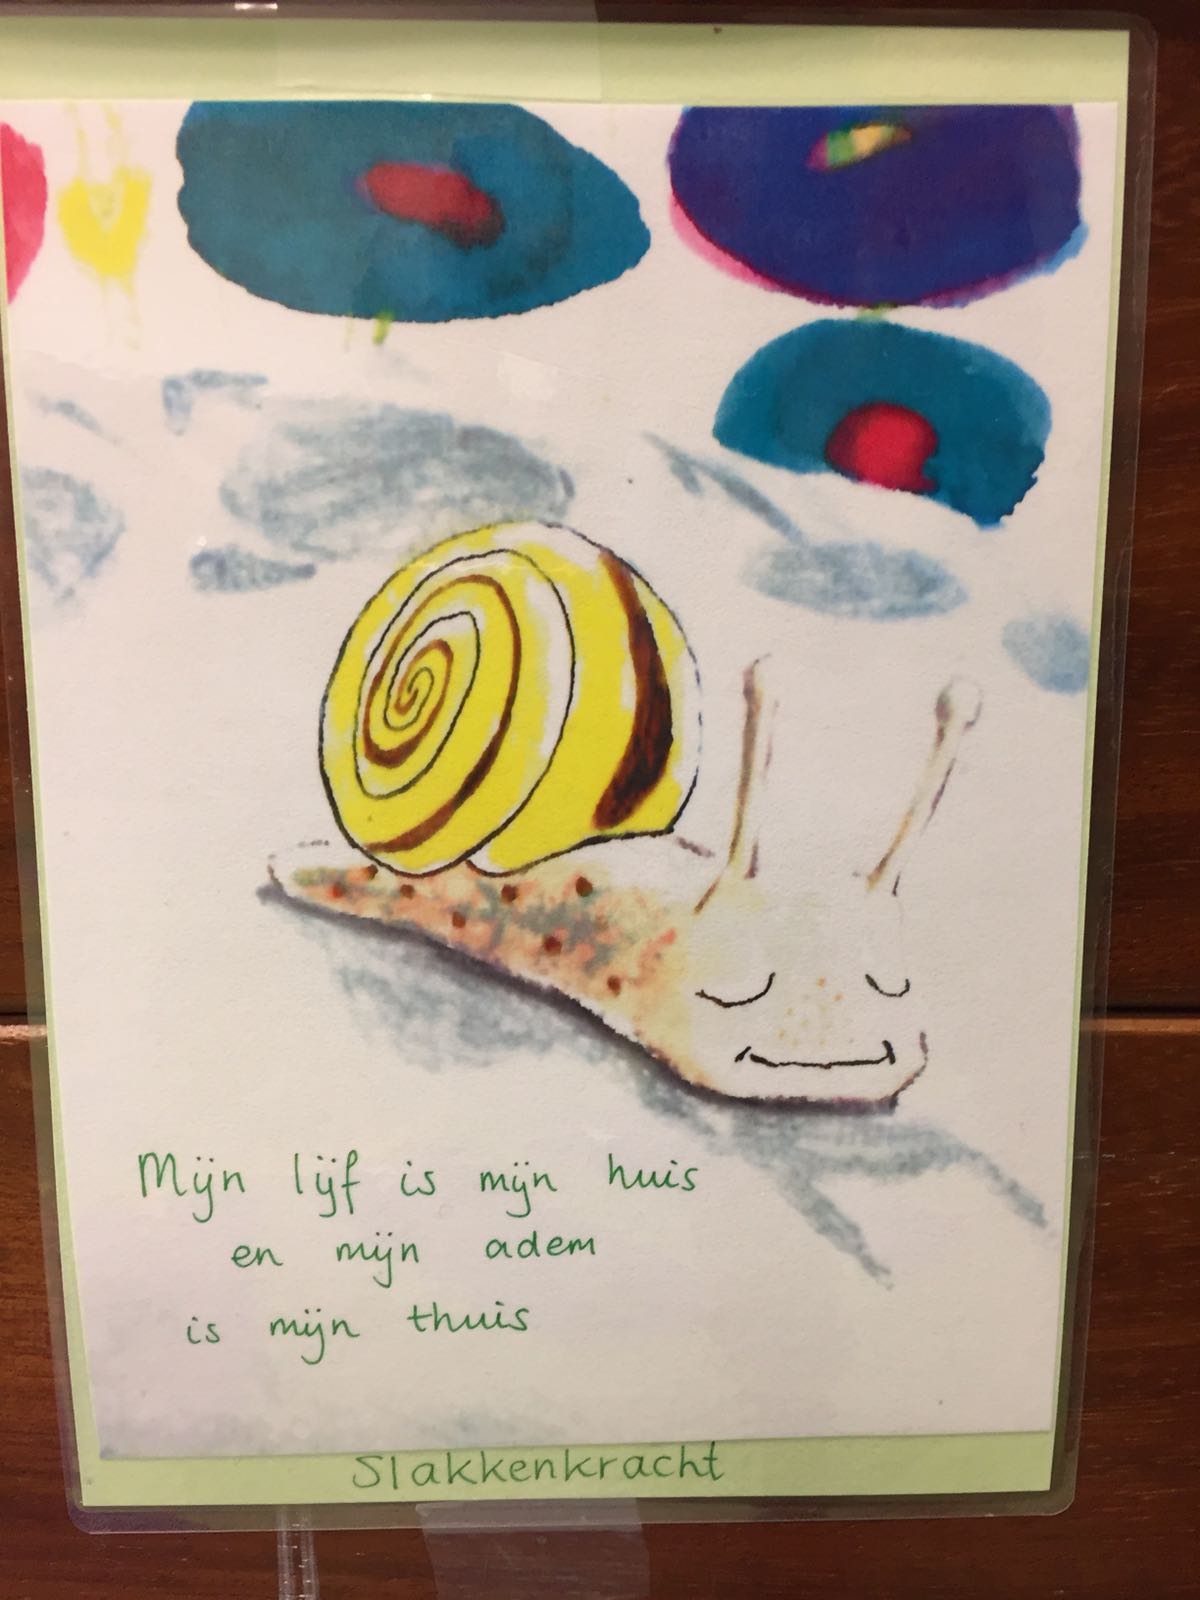 Mijn lijf is mijn huis
en mijn adem
is mijn thuis
Slakkenkracht